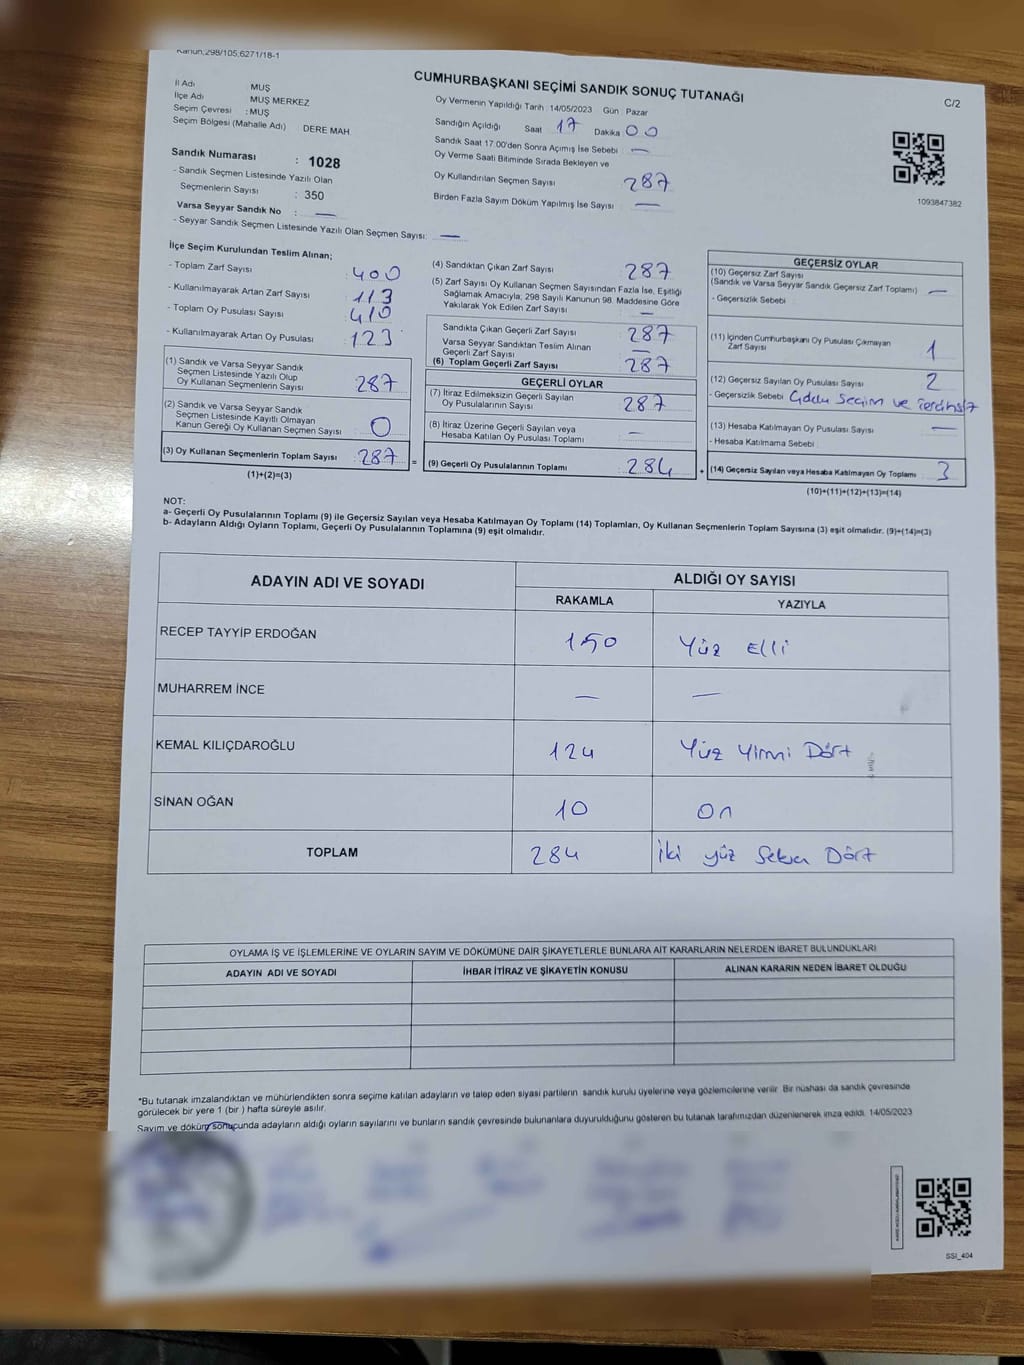 Kanun,298/105,6271/18-1
CUMHURBAŞKANI SEÇİMİ SANDIK SONUÇ TUTANAĞI
C/2
İl Adı MUŞ
İlçe Adı MUŞ MERKEZ
Seçim Çevresi : MUŞ
Seçim Bölgesi (Mahalle Adı) DERE MAH.
Oy Vermenin Yapıldığı Tarih 14/05/2023 Gün Pazar
Sandığın Açıldığı Saat 17 Dakika 00
Sandık Saat 17:00'den Sonra Açımış İse Sebebi —
Oy Verme Saati Bitiminde Sırada Bekleyen ve
Oy Kullandırılan Seçmen Sayısı 287
Birden Fazla Sayım Döküm Yapılmış İse Sayısı —
1093847382
Sandık Numarası : 1028
- Sandık Seçmen Listesinde Yazılı Olan
Seçmenlerin Sayısı : 350
Varsa Seyyar Sandık No : —
- Seyyar Sandık Seçmen Listesinde Yazılı Olan Seçmen Sayısı: —
İlçe Seçim Kurulundan Teslim Alınan;
- Toplam Zarf Sayısı : 400
- Kullanılmayarak Artan Zarf Sayısı : 113
- Toplam Oy Pusulası Sayısı : 410
- Kullanılmayarak Artan Oy Pusulası : 123
(1) Sandık ve Varsa Seyyar Sandık
Seçmen Listesinde Yazılı Olup
Oy Kullanan Seçmenlerin Sayısı : 287
(2) Sandık ve Varsa Seyyar Sandık
Seçmen Listesinde Kayıtlı Olmayan
Kanun Gereği Oy Kullanan Seçmen Sayısı : 0
(3) Oy Kullanan Seçmenlerin Toplam Sayısı : 287 =
(1)+(2)=(3)
(4) Sandıktan Çıkan Zarf Sayısı 287
(5) Zarf Sayısı Oy Kullanan Seçmen Sayısından Fazla İse, Eşitliği
Sağlamak Amacıyla, 298 Sayılı Kanunun 98. Maddesine Göre
Yakılarak Yok Edilen Zarf Sayısı —
Sandıkta Çıkan Geçerli Zarf Sayısı : 287
Varsa Seyyar Sandıktan Teslim Alınan
Geçerli Zarf Sayısı —
(6) Toplam Geçerli Zarf Sayısı : 287
GEÇERLİ OYLAR
(7) İtiraz Edilmeksizin Geçerli Sayılan
Oy Pusulalarının Sayısı : 287
(8) İtiraz Üzerine Geçerli Sayılan veya
Hesaba Katılan Oy Pusulası Toplamı : —
(9) Geçerli Oy Pusulalarının Toplamı : 284 +
GEÇERSİZ OYLAR
(10) Geçersiz Zarf Sayısı
(Sandık ve Varsa Seyyar Sandık Geçersiz Zarf Toplamı) —
- Geçersizlik Sebebi
(11) İçinden Cumhurbaşkanı Oy Pusulası Çıkmayan
Zarf Sayısı 1
(12) Geçersiz Sayılan Oy Pusulası Sayısı 2
- Geçersizlik Sebebi Çoklu Seçim ve Tercihsiz
(13) Hesaba Katılmayan Oy Pusulası Sayısı —
- Hesaba Katılmama Sebebi
(14) Geçersiz Sayılan veya Hesaba Katılmayan Oy Toplamı : 3
(10)+(11)+(12)+(13)=(14)
NOT:
a- Geçerli Oy Pusulalarının Toplamı (9) ile Geçersiz Sayılan veya Hesaba Katılmayan Oy Toplamı (14) Toplamları, Oy Kullanan Seçmenlerin Toplam Sayısına (3) eşit olmalıdır. (9)+(14)=(3)
b- Adayların Aldığı Oyların Toplamı, Geçerli Oy Pusulalarının Toplamına (9) eşit olmalıdır.
ADAYIN ADI VE SOYADI ALDIĞI OY SAYISI
RAKAMLA YAZIYLA
RECEP TAYYİP ERDOĞAN 150 Yüz Elli
MUHARREM İNCE — —
KEMAL KILIÇDAROĞLU 124 Yüz Yirmi Dört
SİNAN OĞAN 10 On
TOPLAM 284 İki yüz Seksen Dört
OYLAMA İŞ VE İŞLEMLERİNE VE OYLARIN SAYIM VE DÖKÜMÜNE DAİR ŞİKAYETLERLE BUNLARA AİT KARARLARIN NELERDEN İBARET BULUNDUKLARI
ADAYIN ADI VE SOYADI İHBAR İTİRAZ VE ŞİKAYETİN KONUSU ALINAN KARARIN NEDEN İBARET OLDUĞU
*Bu tutanak imzalandıktan ve mühürlendikten sonra seçime katılan adayların ve talep eden siyasi partilerin sandık kurulu üyelerine veya gözlemcilerine verilir. Bir nüshası da sandık çevresinde
görülecek bir yere 1 (bir ) hafta süreyle asılır.
Sayım ve döküm sonucunda adayların aldığı oyların sayılarını ve bunların sandık çevresinde bulunanlara duyurulduğunu gösteren bu tutanak tarafımızdan düzenlenerek imza edildi. 14/05/2023
SSI_404